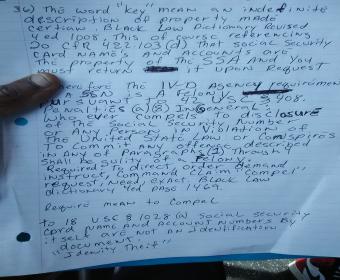 3w) The word "key" mean an indefinite
description of property made
certian. Black Law Dictionary Revised
4 ed 1008. This of course referencing
20 CFR 422.103(d) That Social Security
Card name's and Accounts are
The property of The SSA And You
must return it upon Request
Therefore The IV-D Agency requiremen
a SSN is A Felony
pursuant To 42 USC § 408.
Penalties (a)(8) In General:
who ever compels To disclosure
of The Social Security Number
of Any Person in Violation of
The United State Law or Conspires
To Commit any offense described
in Any of Paragraphs (1) Through
Shall Be guilty of a Felony.
Required To direct, order demand
instruct, command claim "Compel"
request, need, exact. Black Law
dictionary 4ed Page 1469.
Require mean to compel
to 18 USC § 1028 (a) Social Security
Card name and Account numbers By
it self are not An Identification
document.
"Idenity Theif"